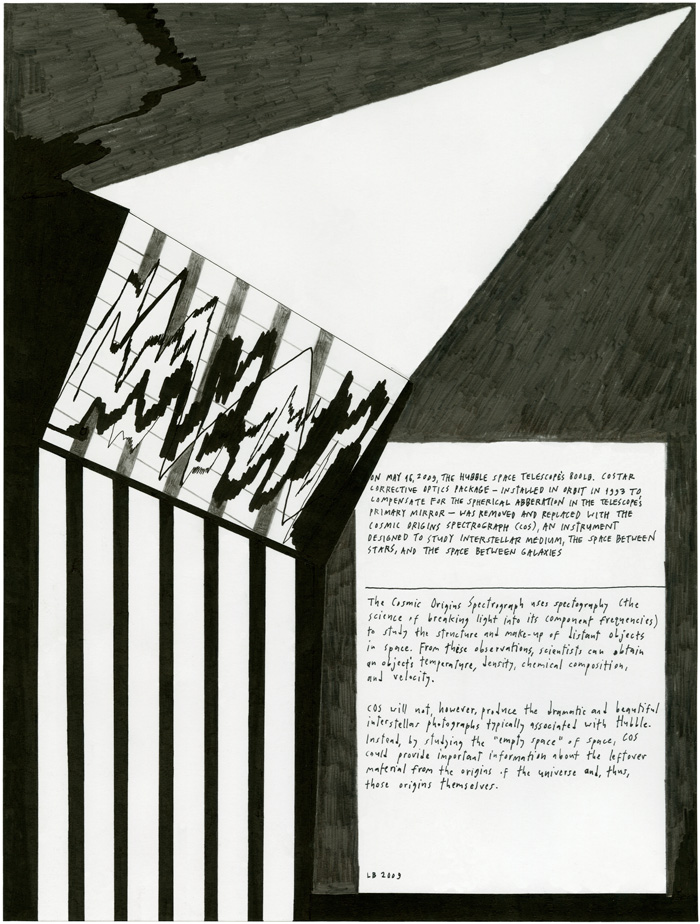 ON MAY 16, 2009, THE HUBBLE SPACE TELESCOPE'S 800LB. COSTAR
CORRECTIVE OPTICS PACKAGE – INSTALLED IN ORBIT IN 1993 TO
COMPENSATE FOR THE SPHERICAL ABBERATION IN THE TELESCOPE'S
PRIMARY MIRROR – WAS REMOVED AND REPLACED WITH THE
COSMIC ORIGINS SPECTROGRAPH (COS), AN INSTRUMENT
DESIGNED TO STUDY INTERSTELLAR MEDIUM, THE SPACE BETWEEN
STARS, AND THE SPACE BETWEEN GALAXIES
The Cosmic Origins Spectrograph uses spectography (the
science of breaking light into its component frequencies)
to study the structure and make-up of distant objects
in space. From these observations, scientists can obtain
an object's temperature, density, chemical composition,
and velocity.
COS will not, however, produce the dramatic and beautiful
interstellar photographs typically associated with Hubble.
Instead, by studying the "empty space" of space, COS
could provide important information about the leftover
material from the origins of the universe and, thus,
those origins themselves.
LB 2009